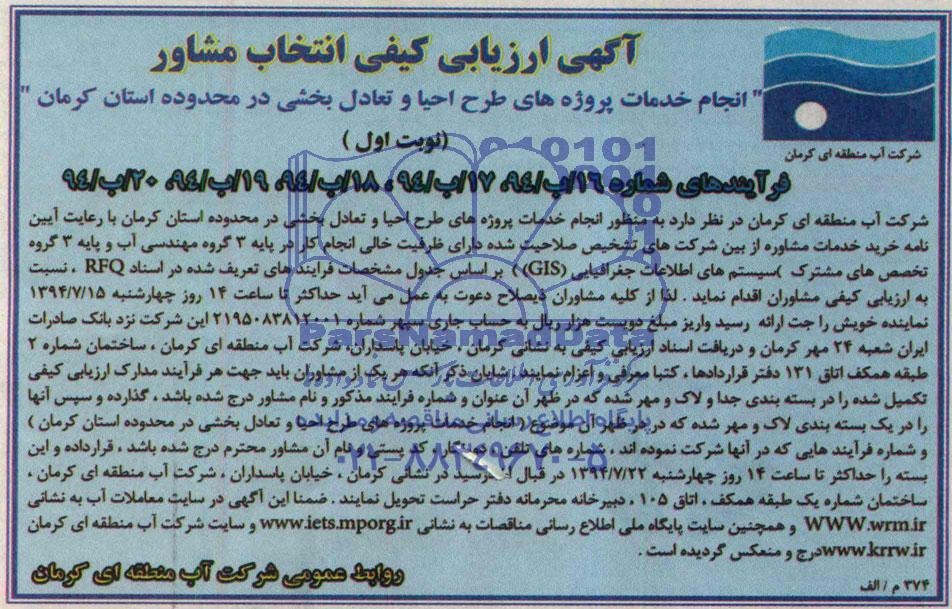 آگهی ارزیابی کیفی انتخاب مشاور
" انجام خدمات پروژه های طرح احیا و تعادل بخشی در محدوده استان کرمان "
(نوبت اول)
شرکت آب منطقه ای کرمان
فرآیندهای شماره ۱۶/ب/۹۴، ۱۷/ب/۹۴، ۱۸/ب/۹۴، ۱۹/ب/۹۴، ۲۰/ب/۹۴
شرکت آب منطقه ای کرمان در نظر دارد به منظور انجام خدمات پروژه های طرح احیا و تعادل بخشی در محدوده استان کرمان با رعایت آیین
نامه خرید خدمات مشاوره از بین شرکت های تشخیص صلاحیت شده دارای ظرفیت خالی انجام کار در پایه ۳ گروه مهندسی آب و پایه ۳ گروه
تخصص های مشترک )سیستم های اطلاعات جغرافیایی (GIS) ) بر اساس جدول مشخصات فرایند های تعریف شده در اسناد RFQ ، نسبت
به ارزیابی کیفی مشاوران اقدام نماید . لذا از کلیه مشاوران ذیصلاح دعوت به عمل می آید حداکثر تا ساعت ۱۴ روز چهارشنبه ۱۳۹۴/۷/۱۵
نماینده خویش را جت ارائه رسید واریز مبلغ دویست هزار ریال به حساب جاری سپهر شماره ۲۱۹۵۰۸۳۸۱۲۰۰۱ این شرکت نزد بانک صادرات
ایران شعبه ۲۴ مهر کرمان و دریافت اسناد ارزیابی کیفی به نشانی کرمان ، خیابان پاسداران، شرکت آب منطقه ای کرمان ، ساختمان شماره ۲
طبقه همکف اتاق ۱۳۱ دفتر قراردادها ، کتبا معرفی و اعزام نمایند. شایان ذکر آنکه هر یک از مشاوران باید جهت هر فرآیند مدارک ارزیابی کیفی
تکمیل شده را در بسته بندی جدا و لاک و مهر شده که در ظهر آن عنوان و شماره فرایند مذکور و نام مشاور درج شده باشد ، گذارده و سپس آنها
را در یک بسته بندی لاک و مهر شده که در در ظهر آن موضوع ( انجام خدمات پروژه های طرح احیا و تعادل بخشی در محدوده استان کرمان )
و شماره فرآیند هایی که در آنها شرکت نموده اند ، شماره های تلفن، دورنگار، کد پستی و نام آن مشاور محترم درج شده باشد ، قرارداده و این
بسته را حداکثر تا ساعت ۱۴ روز چهارشنبه ۱۳۹۴/۷/۲۲ در قبال اخذ رسید در نشانی کرمان ، خیابان پاسداران ، شرکت آب منطقه ای کرمان ،
ساختمان شماره یک طبقه همکف ، اتاق ۱۰۵ ، دبیرخانه محرمانه دفتر حراست تحویل نمایند . ضمنا این آگهی در سایت معاملات آب به نشانی
WWW.wrm.ir و همچنین سایت پایگاه ملی اطلاع رسانی مناقصات به نشانی www.iets.mporg.ir و سایت شرکت آب منطقه ای کرمان
www.krrw.irدرج و منعکس گردیده است .
روابط عمومی شرکت آب منطقه ای کرمان
۳۷۴ م / الف
ParsNamadData
پایگاه اطلاع رسانی مناقصه و مزایده